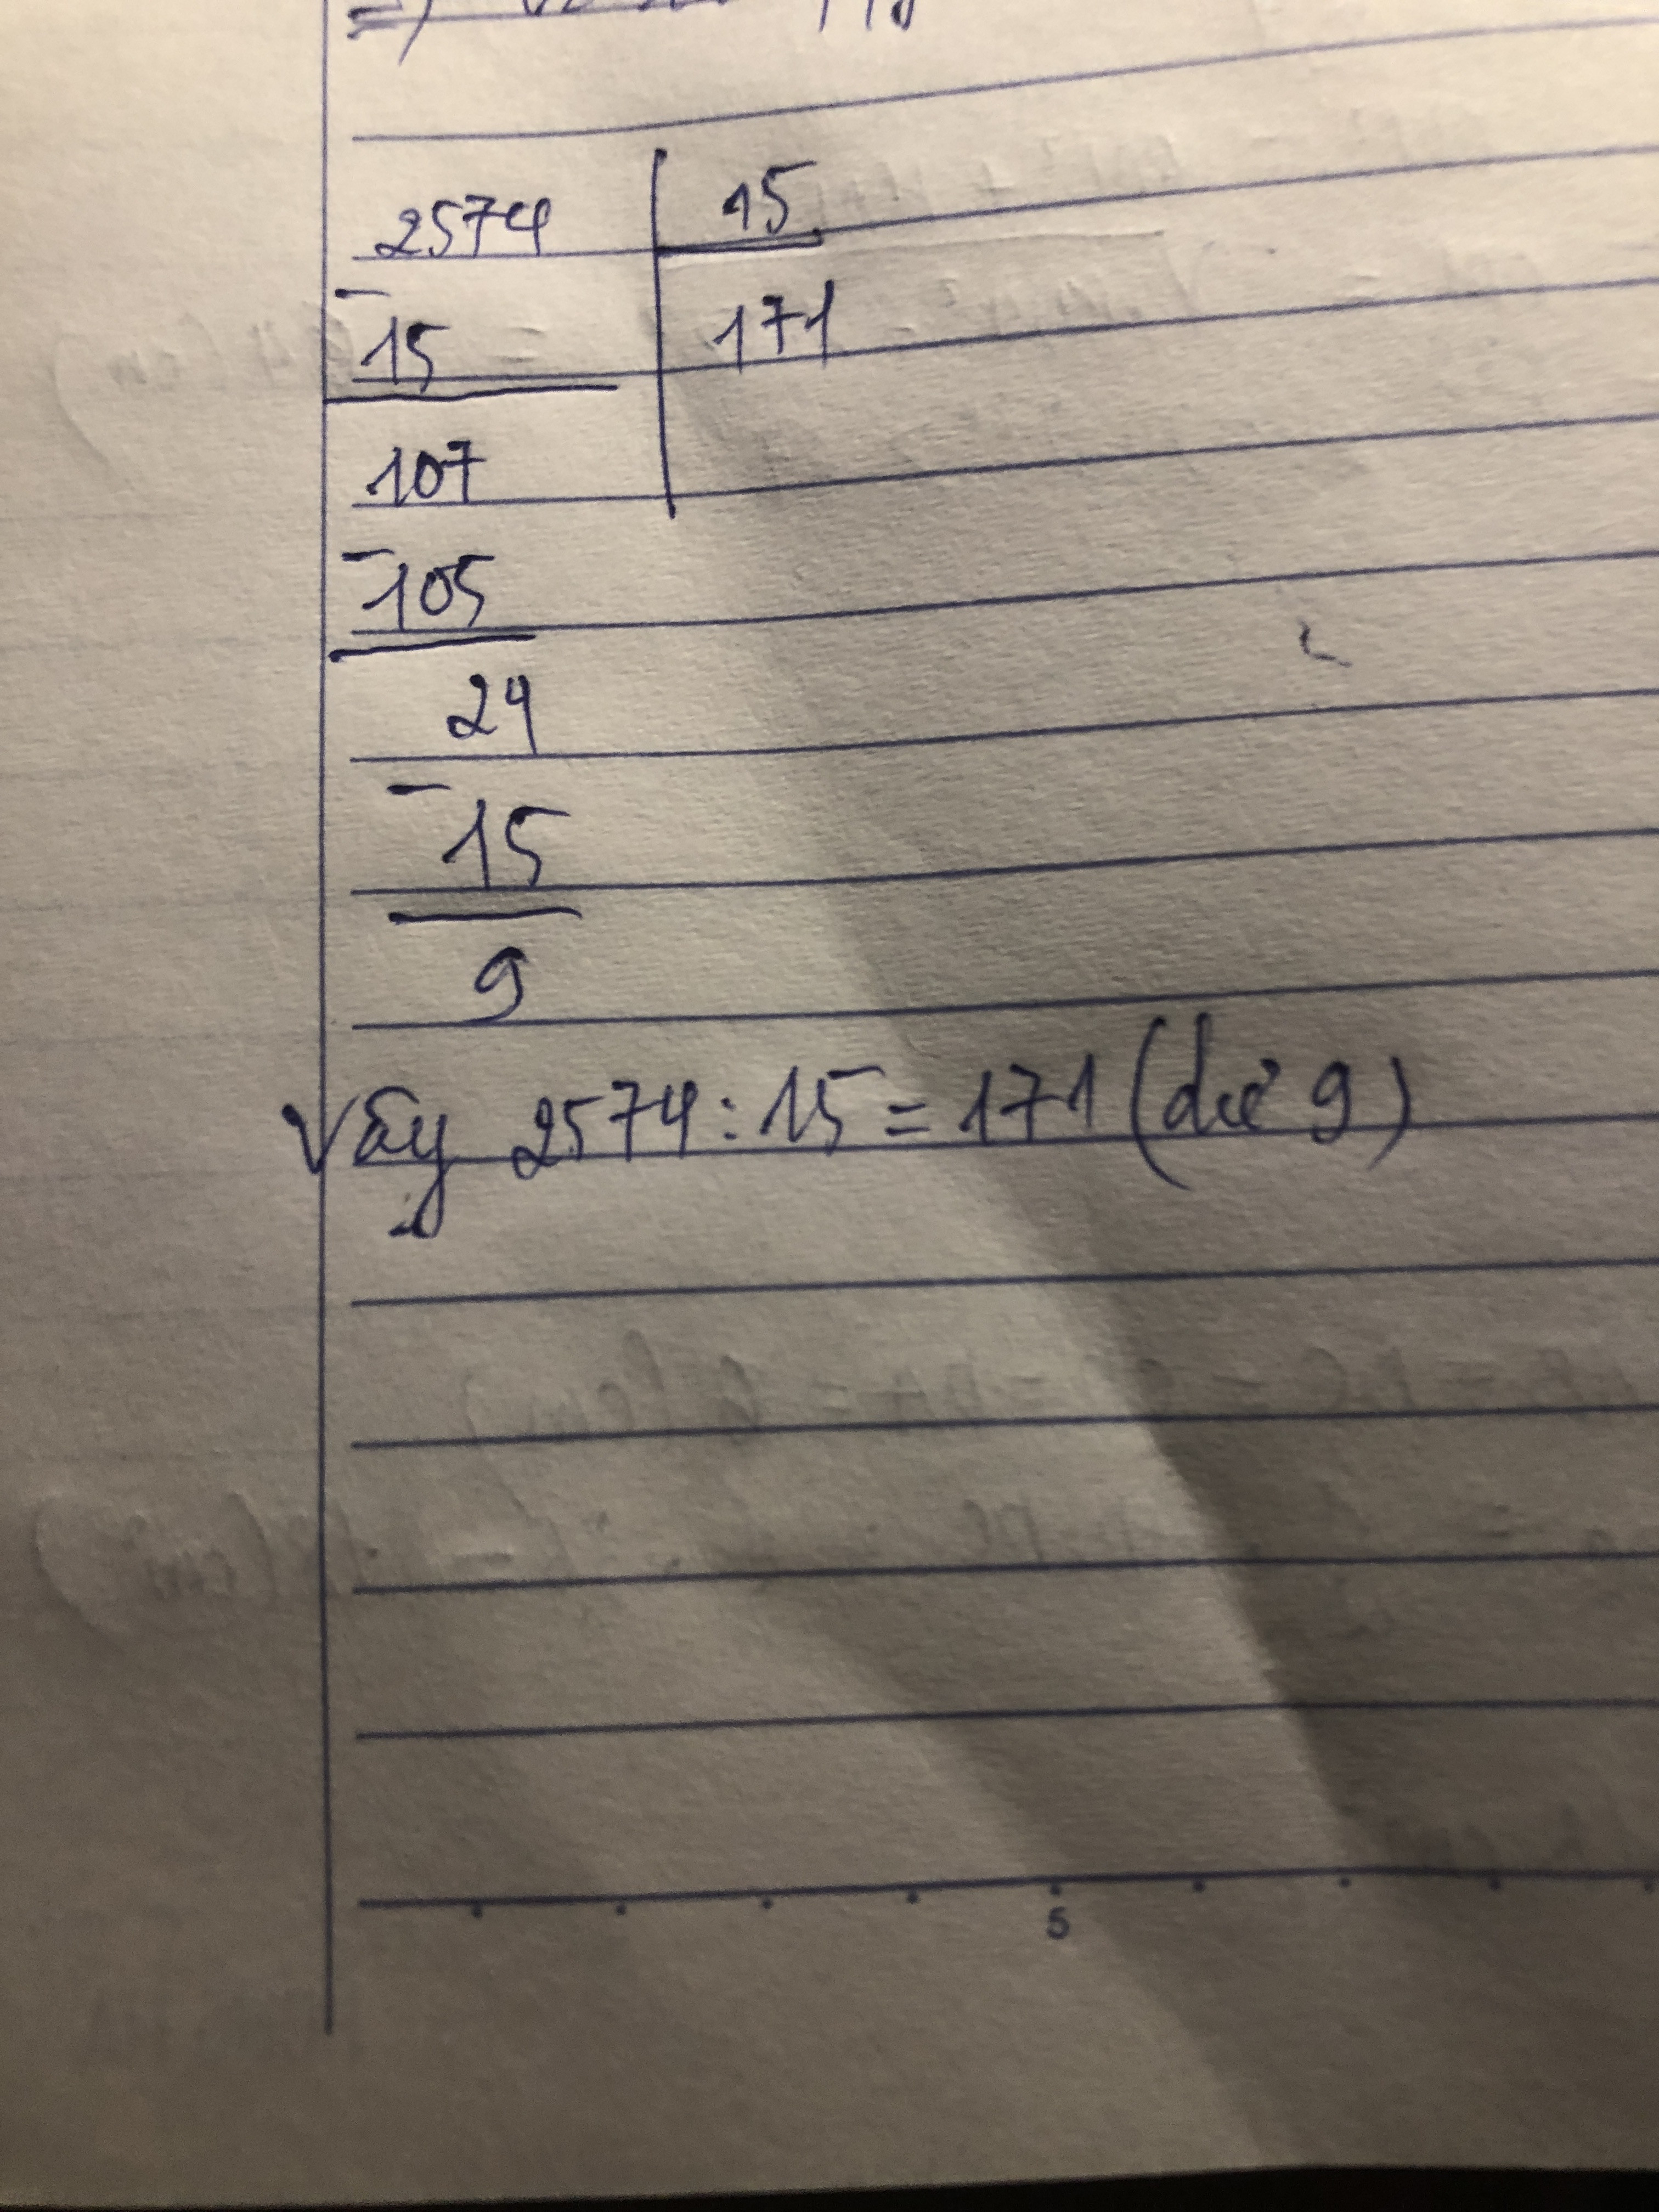 2574 15
- 15 171
107
- 105
24
- 15
9
Vậy 2574 : 15 = 171 (dư 9)
5